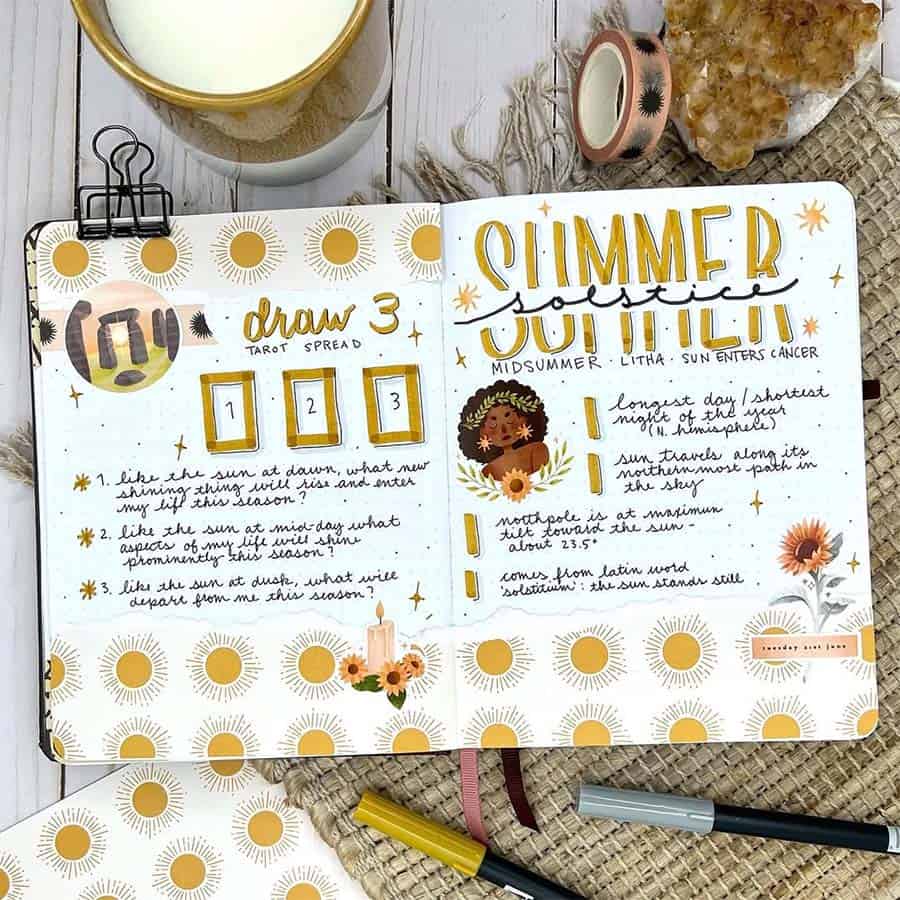 draw 3
TAROT SPREAD
1
2
3
1. like the sun at dawn, what new
shining thing will rise and enter
my life this season?
2. like the sun at mid-day what
aspects of my life will shine
prominently this season?
3. like the sun at dusk, what will
depart from me this season?
SUMMER
solstice
SUMMER
MIDSUMMER · LITHA · SUN ENTERS CANCER
longest day/shortest
night of the year
(N. hemisphere)
sun travels along its
northernmost path in
the sky
north pole is at maximum
tilt toward the sun -
about 23.5°
comes from latin word
'solstitium': the sun stands still
tuesday 21st june